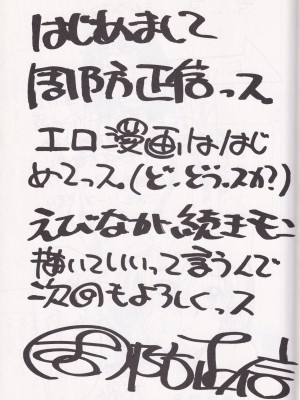 はじめまして
周防正信っス。
エロ漫画は、はじ
めてっス。(ど、どうっスか?)
えびなが続きモン
描いていいって言うんで
次のもよろしくっス
周防正信